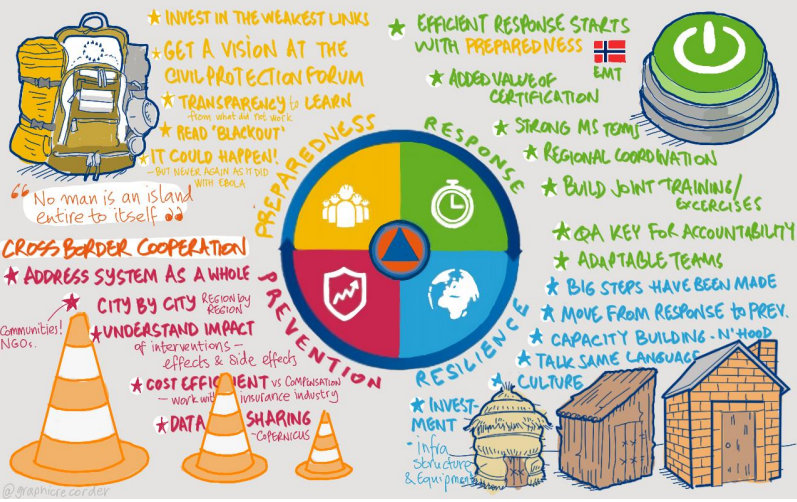 ★ INVEST IN THE WEAKEST LINKS
★ GET A VISION AT THE
CIVIL PROTECTION FORUM
★ TRANSPARENCY to LEARN
from what did not work
★ READ 'BLACKOUT'
★ IT COULD HAPPEN!
– BUT NEVER AGAIN AS IT DID
WITH EBOLA
“No man is an island
entire to itself”
PREPAREDNESS
★ EFFICIENT RESPONSE STARTS
WITH PREPAREDNESS
EMT
★ ADDED VALUE OF
CERTIFICATION
★ STRONG MS TEAMS
★ REGIONAL COORDINATION
★ BUILD JOINT TRAINING/
EXCERCISES
★ QA KEY FOR ACCOUNTABILITY
★ ADAPTABLE TEAMS
RESPONSE
CROSS BORDER COOPERATION
★ ADDRESS SYSTEM AS A WHOLE
★ CITY BY CITY REGION by
REGION
Communities!
NGOs.
★ UNDERSTAND IMPACT
of interventions –
effects & side effects
★ COST EFFICIENT vs COMPENSATION
– work with insurance industry
★ DATA SHARING
- COPERNICUS
PREVENTION
★ BIG STEPS HAVE BEEN MADE
★ MOVE FROM RESPONSE to PREV.
★ CAPACITY BUILDING - N'HOOD
★ TALK SAME LANGUAGE
★ CULTURE
★ INVEST-
MENT
- infra
structure
& Equipment
RESILIENCE
@graphicrecorder